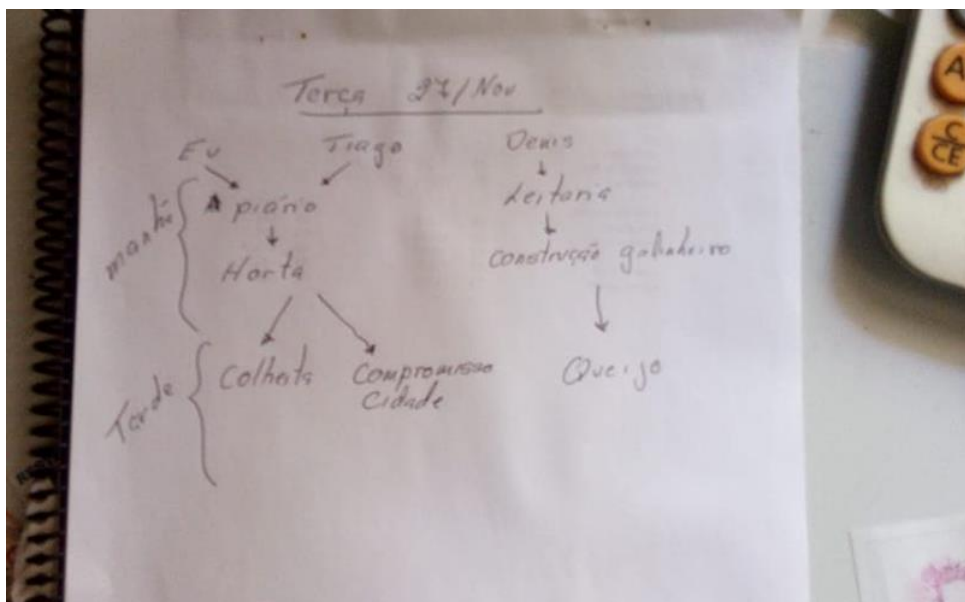 Terça 27/Nov
Eu Tiago Denis
manhã
Apiário Leitaria
Horta Construção galinheiro
Tarde
Colheita Compromisso Queijo
Cidade
A
C
CE